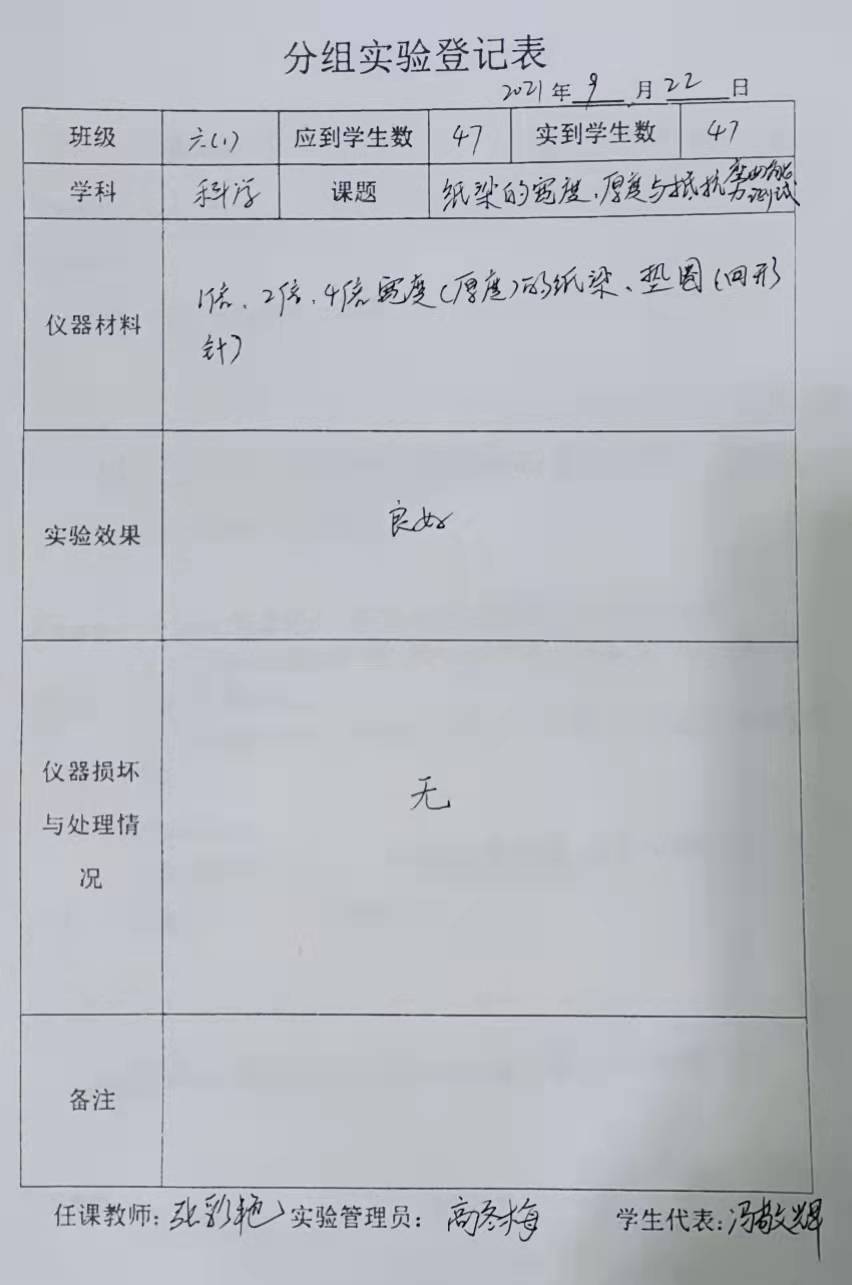 分组实验登记表
2021年 9 月 22 日
班级 六(1) 应到学生数 47 实到学生数 47
学科 科学 课题 纸梁的宽度、厚度与抵抗弯曲能力测试
仪器材料 1倍、2倍、4倍宽度(厚度)的纸梁、垫圈(回形
针)
实验效果 良好
仪器损坏
与处理情
况
无
备注
任课教师: 张彩艳 实验管理员: 高冬梅 学生代表: 冯敬辉